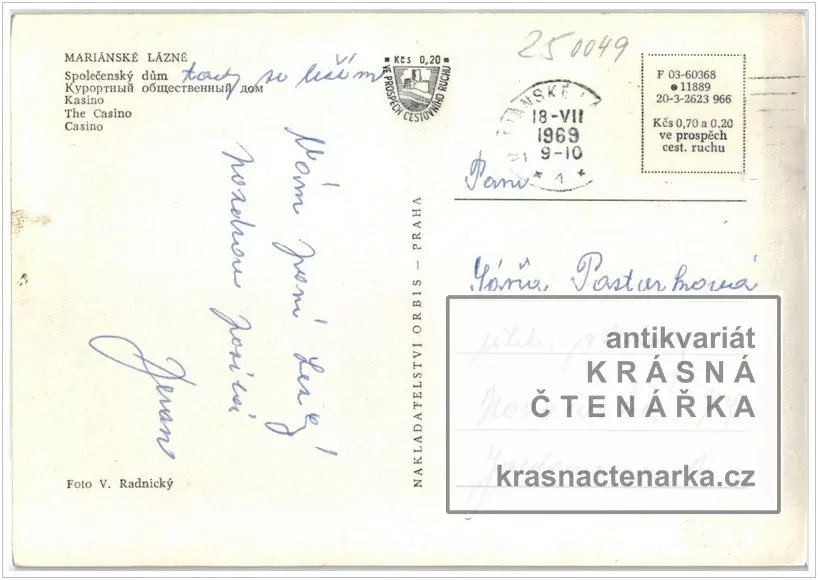 MARIÁNSKÉ LÁZNĚ
Společenský dům tady se léčím
Курортный общественный дом
Kasino
The Casino
Casino
Kčs 0,20
VE PROSPĚCH CESTOVNÍHO RUCHU
250049
MARIÁNSKÉ LÁ
18-VII
1969
9-10
1
F 03-60368
11889
20-3-2623 966
Kčs 0,70 a 0,20
ve prospěch
cest. ruchu
Paní
Pasturková
Vám paní
pozdrav posílá
NAKLADATELSTVÍ ORBIS – PRAHA
antikvariát
KRÁSNÁ
ČTENÁŘKA
krasnactenarka.cz
Foto V. Radnický